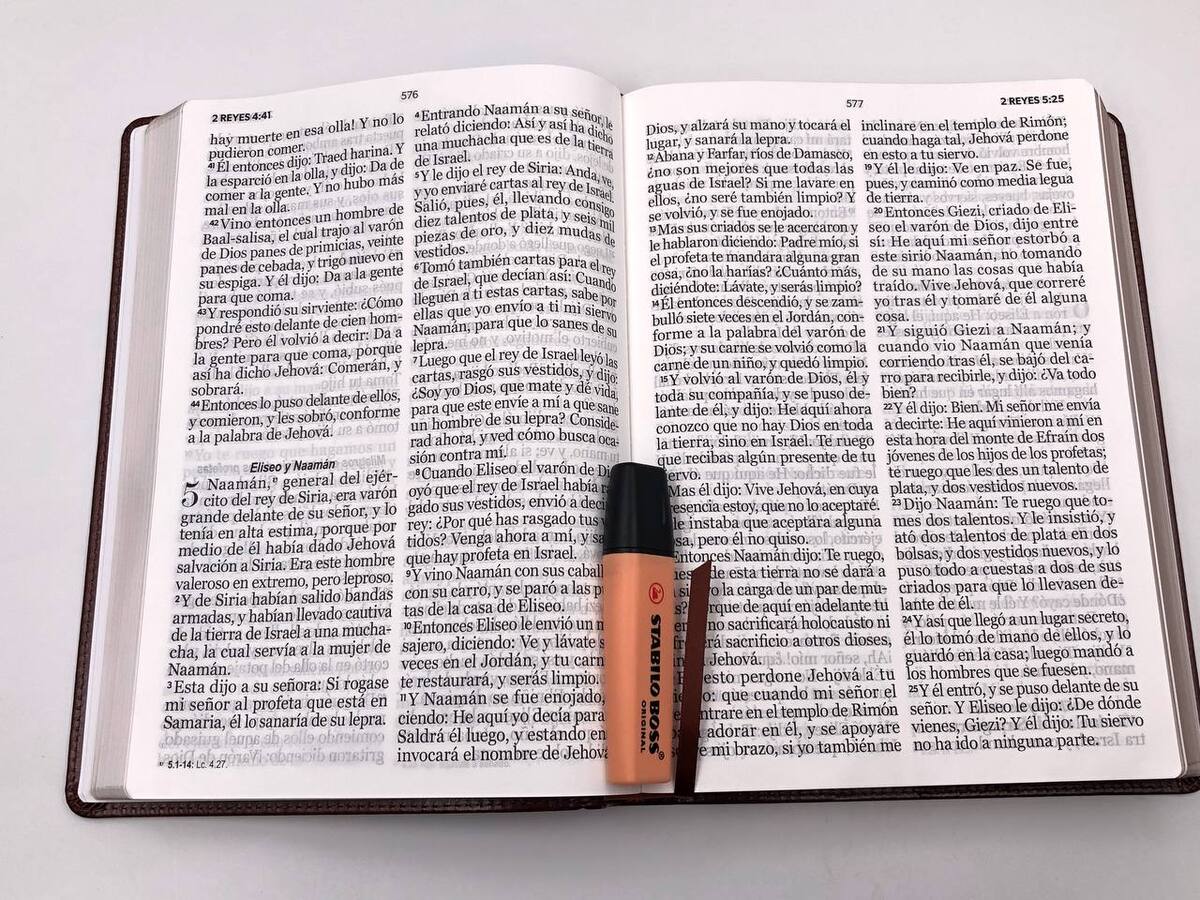 576
2 REYES 4:41
hay muerte en esa olla! Y no lo
pudieron comer.
41 Él entonces dijo: Traed harina. Y
la esparció en la olla, y dijo: Da de
comer a la gente. Y no hubo más
mal en la olla.
42 Vino entonces un hombre de
Baal-salisa, el cual trajo al varón
de Dios panes de primicias, veinte
panes de cebada, y trigo nuevo en
su espiga. Y él dijo: Da a la gente
para que coma.
43 Y respondió su sirviente: ¿Cómo
pondré esto delante de cien hom-
bres? Pero él volvió a decir: Da a
la gente para que coma, porque
así ha dicho Jehová: Comerán, y
sobrará.
44 Entonces lo puso delante de ellos,
y comieron, y les sobró, conforme
a la palabra de Jehová.
Eliseo y Naamán
5 Naamán, general del ejér-
cito del rey de Siria, era varón
grande delante de su señor, y lo
tenía en alta estima, porque por
medio de él había dado Jehová
salvación a Siria. Era este hombre
valeroso en extremo, pero leproso.
2 Y de Siria habían salido bandas
armadas, y habían llevado cautiva
de la tierra de Israel a una mucha-
cha, la cual servía a la mujer de
Naamán.
3 Esta dijo a su señora: Si rogase
mi señor al profeta que está en
Samaria, él lo sanaría de su lepra.
5.1-14: Lc. 4.27.
4 Entrando Naamán a su señor, le
relató diciendo: Así y así ha dicho
una muchacha que es de la tierra
de Israel.
5 Y le dijo el rey de Siria: Anda, ve,
y yo enviaré cartas al rey de Israel.
Salió, pues, él, llevando consigo
diez talentos de plata, y seis mil
piezas de oro, y diez mudas de
vestidos.
6 Tomó también cartas para el rey
de Israel, que decían así: Cuando
lleguen a ti estas cartas, sabe por
ellas que yo envío a ti mi siervo
Naamán, para que lo sanes de su
lepra.
7 Luego que el rey de Israel leyó las
cartas, rasgó sus vestidos, y dijo:
¿Soy yo Dios, que mate y dé vida,
para que este envíe a mí a que sane
un hombre de su lepra? Conside-
rad ahora, y ved cómo busca oca-
sión contra mí.
8 Cuando Eliseo el varón de
oyó que el rey de Israel había
gado sus vestidos, envió a
rey: ¿Por qué has rasgado tus
tidos? Venga ahora a mí, y
que hay profeta en Israel.
9 Y vino Naamán con sus
con su carro, y se paró a las
tas de la casa de Eliseo.
10 Entonces Eliseo le envió un
sajero, diciendo: Ve y lávate
veces en el Jordán, y tu
te restaurará, y serás limpio.
11 Y Naamán se fue enojado,
ciendo: He aquí yo decía para
Saldrá él luego, y estando en
invocará el nombre de Jehová
577
2 REYES 5:25
Dios, y alzará su mano y tocará el
lugar, y sanará la lepra.
12 Abana y Farfar, ríos de Damasco,
¿no son mejores que todas las
aguas de Israel? Si me lavare en
ellos, ¿no seré también limpio? Y
se volvió, y se fue enojado.
13 Mas sus criados se le acercaron y
le hablaron diciendo: Padre mío, si
el profeta te mandara alguna gran
cosa, ¿no la harías? ¿Cuánto más,
diciéndote: Lávate, y serás limpio?
14 Él entonces descendió, y se zam-
bulló siete veces en el Jordán, con-
forme a la palabra del varón de
Dios; y su carne se volvió como la
carne de un niño, y quedó limpio.
15 Y volvió al varón de Dios, él y
toda su compañía, y se puso de-
lante de él, y dijo: He aquí ahora
conozco que no hay Dios en toda
la tierra, sino en Israel. Te ruego
que recibas algún presente de tu
siervo.
Mas él dijo: Vive Jehová, en cuya
presencia estoy, que no lo aceptaré.
le instaba que aceptara alguna
cosa, pero él no quiso.
Entonces Naamán dijo: Te ruego,
de esta tierra no se dará a
la carga de un par de mu-
porque de aquí en adelante tu
no sacrificará holocausto ni
sacrificio a otros dioses,
Jehová.
esto perdone Jehová a tu
que cuando mi señor el
entrare en el templo de Rimón
adorar en él, y se apoyare
mi brazo, si yo también me
inclinare en el templo de Rimón;
cuando haga tal, Jehová perdone
en esto a tu siervo.
19 Y él le dijo: Ve en paz. Se fue,
pues, y caminó como media legua
de tierra.
20 Entonces Giezi, criado de Eli-
seo el varón de Dios, dijo entre
sí: He aquí mi señor estorbó a
este sirio Naamán, no tomando
de su mano las cosas que había
traído. Vive Jehová, que correré
yo tras él y tomaré de él alguna
cosa.
21 Y siguió Giezi a Naamán; y
cuando vio Naamán que venía
corriendo tras él, se bajó del ca-
rro para recibirle, y dijo: ¿Va todo
bien?
22 Y él dijo: Bien. Mi señor me envía
a decirte: He aquí vinieron a mí en
esta hora del monte de Efraín dos
jóvenes de los hijos de los profetas;
te ruego que les des un talento de
plata, y dos vestidos nuevos.
23 Dijo Naamán: Te ruego que to-
mes dos talentos. Y le insistió, y
ató dos talentos de plata en dos
bolsas, y dos vestidos nuevos, y lo
puso todo a cuestas a dos de sus
criados para que lo llevasen de-
lante de él.
24 Y así que llegó a un lugar secreto,
él lo tomó de mano de ellos, y lo
guardó en la casa; luego mandó a
los hombres que se fuesen.
25 Y él entró, y se puso delante de su
señor. Y Eliseo le dijo: ¿De dónde
vienes, Giezi? Y él dijo: Tu siervo
no ha ido a ninguna parte.
STABILO BOSS®
ORIGINAL